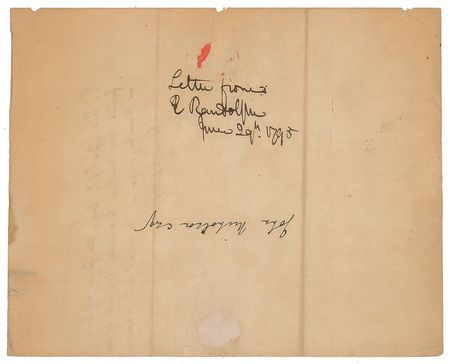 Letter from
E Randolph
June 29th. 1795
John Nicholson esq